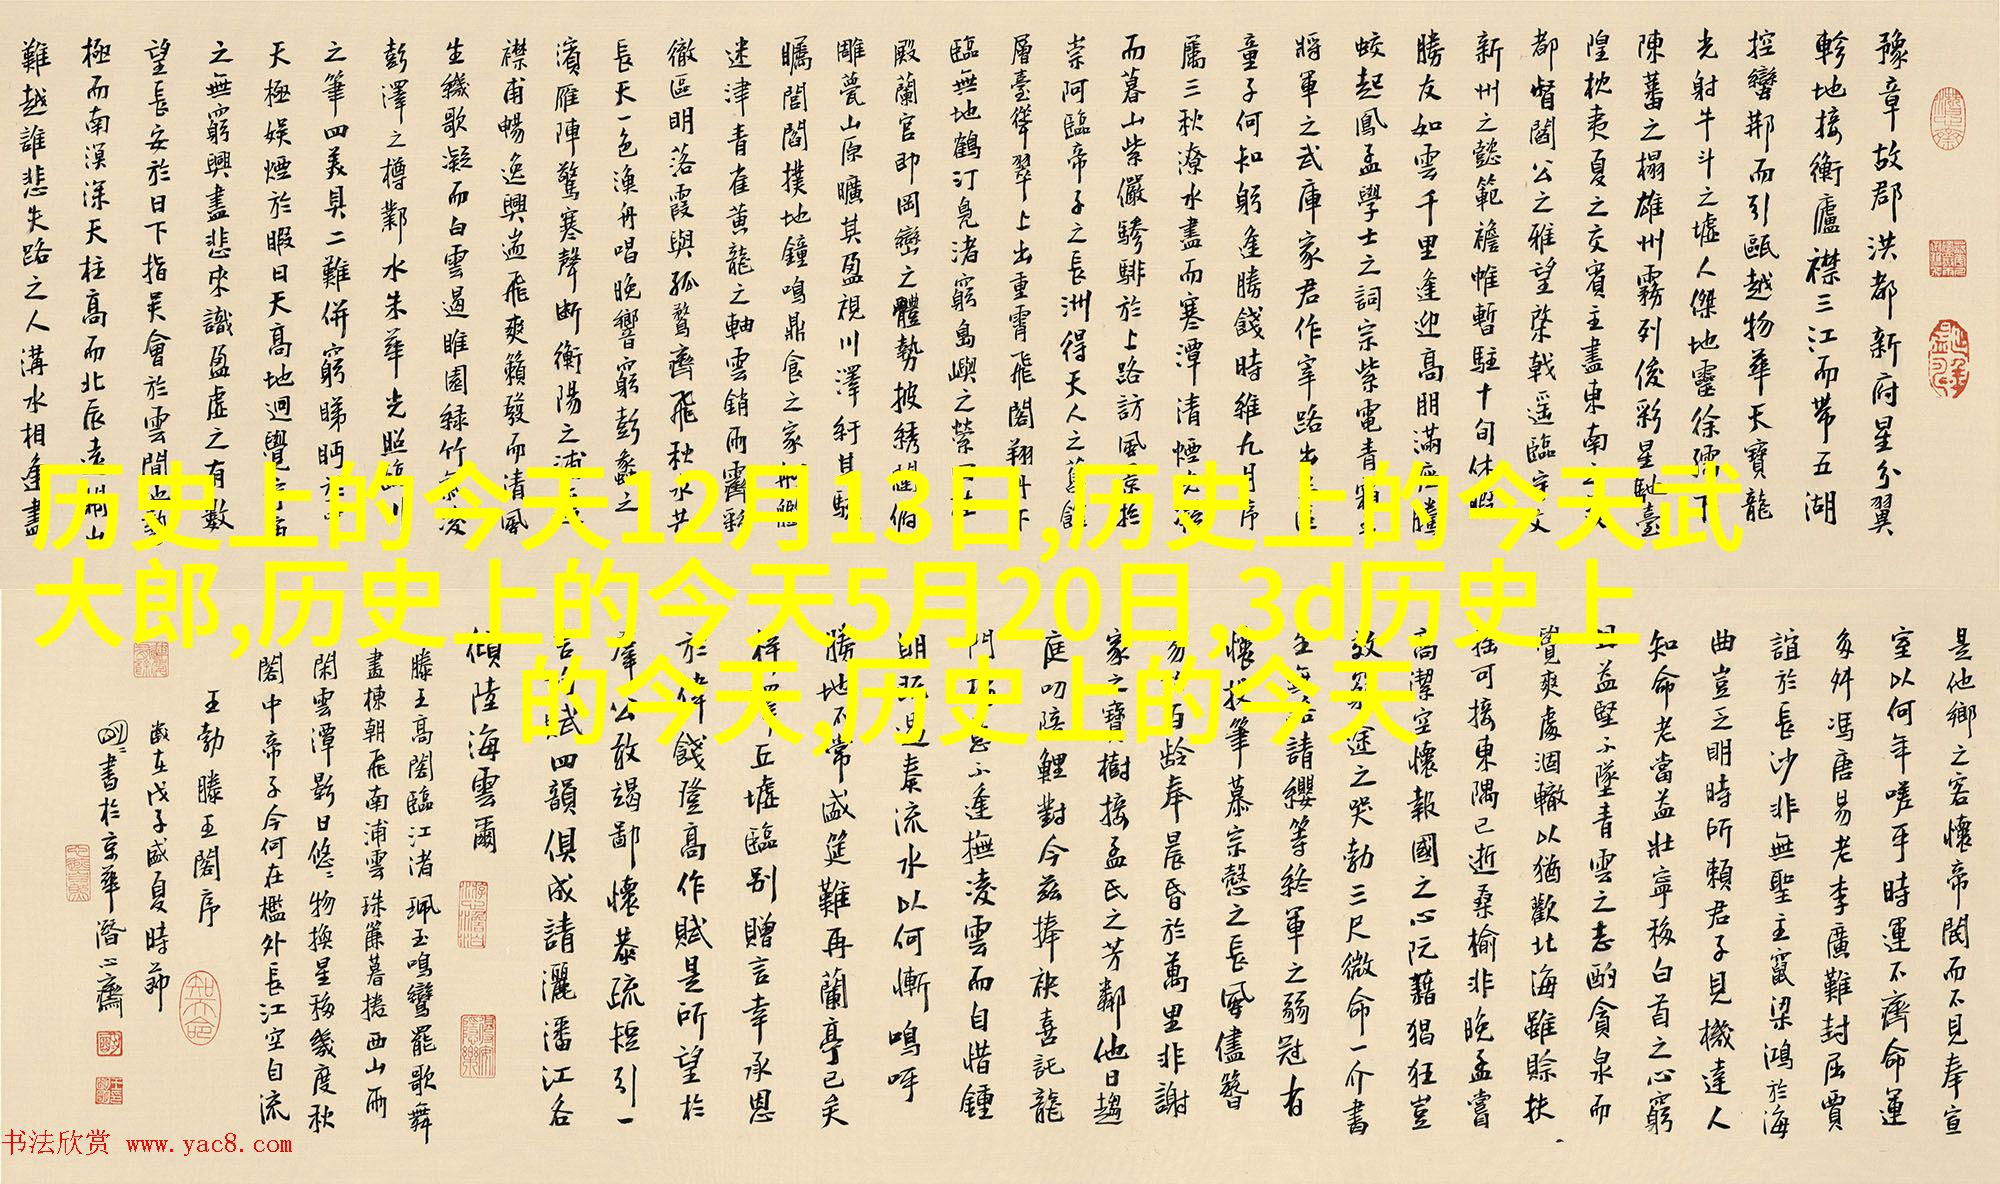 豫章故郡洪都新府星分翼
軫地接衡廬襟三江而帶五湖
控蠻荊而引甌越物華天寶龍
光射牛斗之墟人傑地靈徐孺下
陳蕃之榻雄州霧列俊彩星馳臺
隍枕夷夏之交賓主盡東南之
都督閻公之雅望棨戟遥臨宇文
新州之懿範襜帷暫駐十旬休暇
勝友如雲千里逢迎高朋滿座騰
蛟起鳳孟學士之詞宗紫電青霜王
將軍之武庫家君作宰路出
童子何知躬逢勝餞時維九月序
屬三秋潦水盡而寒潭清煙光
而暮山紫儼驂騑於上路訪風景於
崇阿臨帝子之長洲得天人之舊館
層臺聳翠上出重霄飛閣翔丹下
臨無地鶴汀鳧渚窮島嶼之縈
殿蘭宮即岡巒之體勢披綉闥俯
雕甍山原曠其盈視川澤紆其駭
矚閭閻撲地鐘鳴鼎食之家舸艦
迷津青雀黃龍之軸雲銷雨霽彩
徹區明落霞與孤鶩齊飛秋水共
長天一色漁舟唱晚響窮彭蠡之
濱雁陣驚寒聲斷衡陽之浦
襟甫暢逸興遄飛爽籟發而清風
生纖歌凝而白雲遏睢園緑竹氣凌
彭澤之樽鄴水朱華光照臨川
之筆四美具二難併窮睇眄於
天極娱煙於暇日天高地迥覺
之無窮興盡悲來識盈虛之有數
望長安於日下指吳會於雲間
極而南溟深天柱高而北辰遠關山
難越誰悲失路之人溝水相逢盡
历史上的今天12月13日,历史上的今天武
大郎,历史上的今天5月20日,3d历史上
的今天,历史上的今天
是他鄉之客懷帝閽而不見奉宣
室以何年嗟乎時運不齊命運
多舛馮唐易老李廣難封屈賈
誼於長沙非無聖主竄梁鴻於海
曲豈乏明時所賴君子見機達人
知命老當益壯寧移白首之心窮
且益堅不墜青雲之志酌貪泉而
覺爽處涸轍以猶歡北海雖賒扶
摇可接東隅已逝桑榆非晚孟嘗
高潔空懷報國之心阮藉猖狂豈
效窮途之哭勃三尺微命一介書
生無路請纓等終軍之弱冠有
懷投筆慕宗慤之長風儘簪
笏於百齡奉晨昏於萬里非謝
家之寶樹接孟氏之芳鄰他日趨
庭叨陪鯉對今兹捧袂喜託龍
門不逢撫凌雲而自惜鍾
期既遇奏流水以何慚鳴呼
勝地不常盛筵難再蘭亭已矣
梓澤丘墟臨别贈言幸承恩
於偉餞登高作賦是所望於
羣公敢竭鄙懷恭疏短引一
言均賦四韻俱成請灑潘江各
傾陸海雲爾
滕王高閣臨江渚珮玉鳴鸞罷歌舞
畫棟朝飛南浦雲珠簾暮捲西山雨
閑雲潭影日悠〻物換星移幾度秋
閣中帝子今何在檻外長江空自流
王勃滕王閣序
歲在戊子盛夏時節
書於京華潛心齋
书法欣赏 www.yac8.com